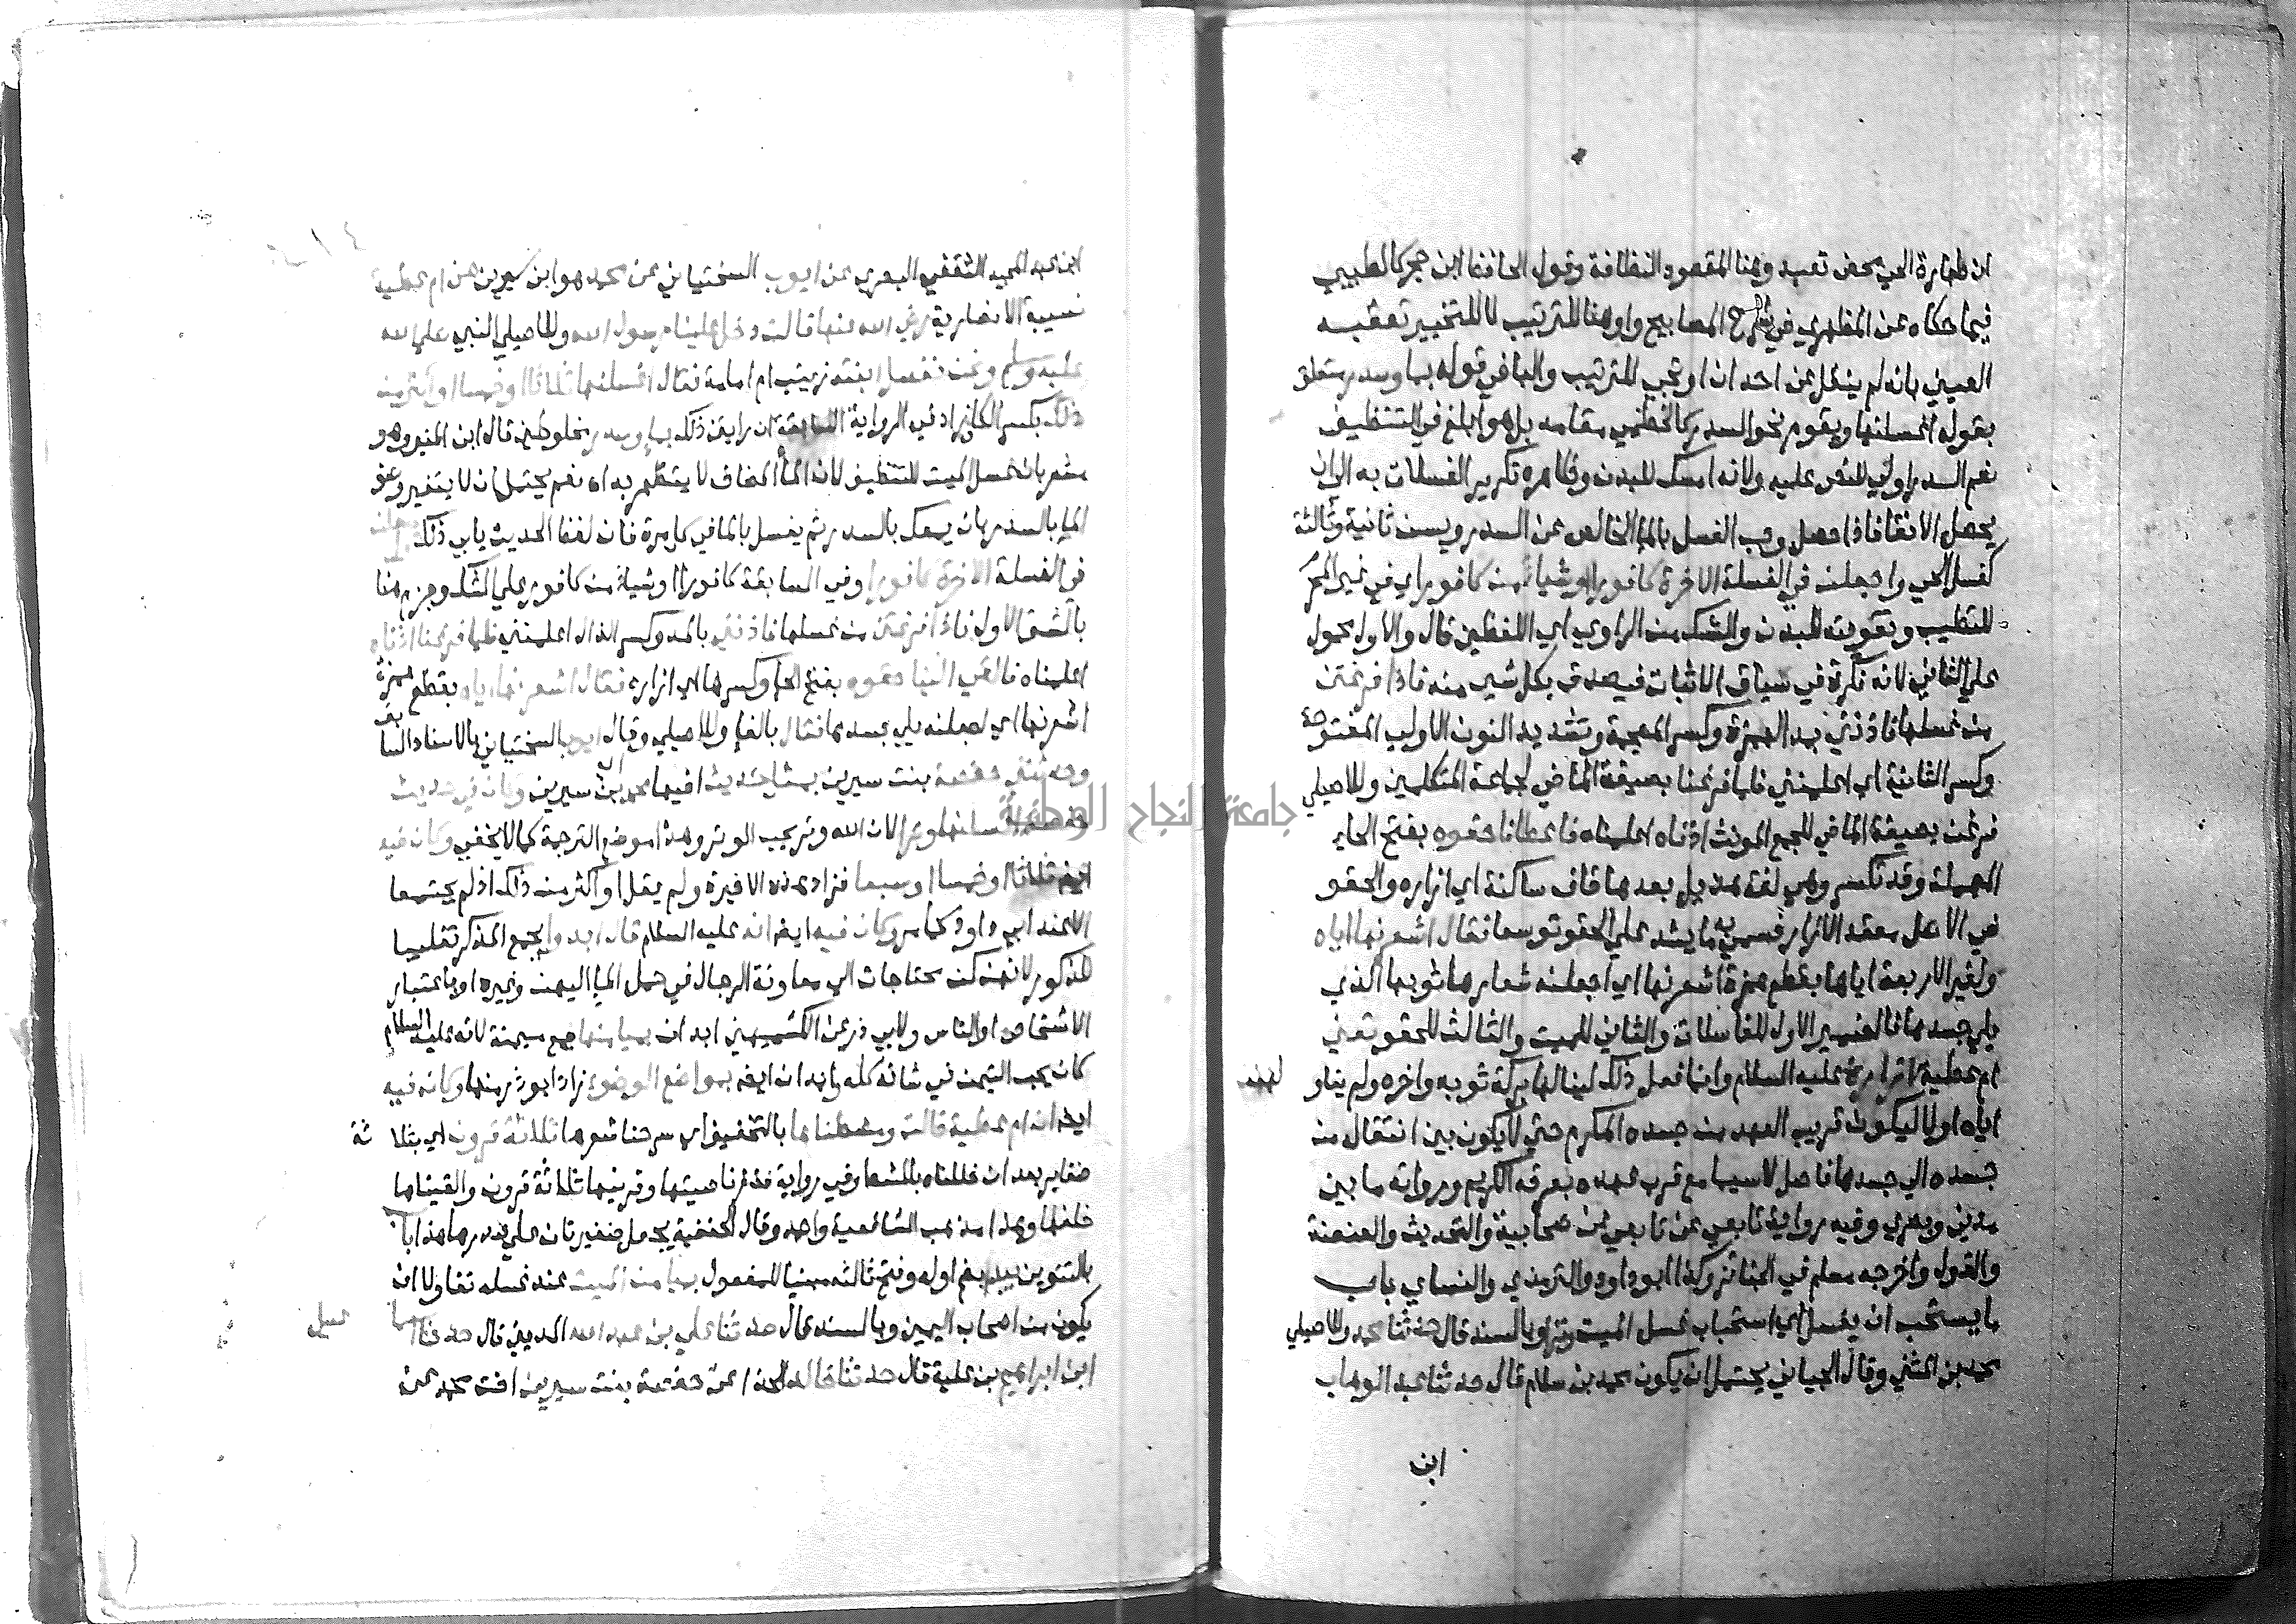 ان طهارة الحي محض تعبد وهنا المقصود النظافة وقول الحافظ ابن حجر كالطيبي
فيما حكاه عن المظهري في شرح المصابيح واو هنا للترتيب لا للتخيير تعقبه
العيني بانه لم ينقل عن احد ان او تجي للترتيب والبا في قوله بما وسدر متعلق
بقوله اغسلنها ويقوم نحو السدر كالخطمي مقامه بل هو ابلغ في التنظيف
نعم السدر اولي للنص عليه ولانه امسك للبدن وظاهره تكرير الغسلات به الي ان
يحصل الانقا فاذا حصل وجب الغسل بالما الخالص عن السدر ويسن ثانية وثالثة
كغسل الحي واجعلن في الغسلة الاخرة كافورا او شيا من كافور اي في غير المحرم
للتطيب وتقويته للبدن والشك من الراوي اي اللفظين قال والاول محمول
علي الثاني لانه نكرة في سياق الاثبات فيصدق بكل شي منه فاذا فرغتن
من غسلها فاذنني بمد الهمزة وكسر المعجمة وتشديد النون الاولي المفتوحة
وكسر الثانية اي اعلمنني فلما فرغنا بصيغة الماضي لجماعة المتكلمين وللاصيلي
فرغن بصيغة الماضي للجمع المونث اذناه اعلمناه فاعطانا حقوه بفتح الحا
المهملة وقد تكسر وهي لغة هذيل بعدها قاف ساكنة اي ازاره والحقو
في الاصل معقد الازار فسمي به ما يشد علي الحقو توسعا فقال اشعرنها اياه
ولغير الاربعة اياها بقطع همزة اشعرنها اي اجعلنه شعارها ثوبها الذي
يلي جسدها فالضمير الاول للغاسلات والثاني للميت والثالث للحقو تعني
ام عطية ازاره عليه السلام وانما فعل ذلك لينالها بركة ثوبه واخره ولم يناو
لهن
اياه اولا ليكون قريب العهد من جسده المكرم حتي لا يكون بين انتقاله من
جسده الي جسدها فاصل لاسيما مع قرب عهده بعرقه الكريم ورواته ما بين
مدني وبصري وفيه رواية تابعي عن تابعي عن صحابية والتحديث والعنعنة
والقول واخرجه مسلم في الجنائز وكذا ابو داود والترمذي والنساي باب
ما يستحب ان يغسل اي استحباب غسل الميت وترا وبالسند قال حدثنا محمد وللاصيلي
محمد بن المثني وقال الجياني يحتمل ان يكون محمد بن سلام قال حدثنا عبد الوهاب
ابن
ابن عبد المجيد الثقفي البصري عن ايوب السختياني عن محمد هو ابن سيرين عن ام عطية
نسيبة الانصارية رضي الله عنها قالت دخل علينا رسول الله وللاصيلي النبي صلي الله
عليه وسلم ونحن نغسل ابنته زينب ام امامة فقال اغسلنها ثلاثا او خمسا او اكثر من
ذلك بكسر الكاف زاد في الرواية السابقة ان رايتن ذلك بما وسدر مخلوطين قال ابن المنير وهو
مشعر بان غسل الميت للتنظيف لان الما المضاف لا يتطهر به اه نعم يحتمل ان لا يتغير وصف
الما بالسدر بان يمعك بالسدر ثم يغسل بالما في كل مرة فان لفظ الحديث يابي ذلك واجعلن
في الغسلة الاخرة كافورا وفي السابقة كافورا او شيا من كافور علي الشك وجزم هنا
بالشق الاول فاذا فرغتن من غسلها فاذنني بالمد وكسر الذال اعلمنني فلما فرغنا اذناه
اعلمناه فالقي الينا حقوه بفتح الحا وكسرها اي ازاره فقال اشعرنها اياه بقطع همزة
اشعرنها اي اجعلنه يلي جسدها فقال بالفا وللاصيلي وقال ايوب السختياني بالاسناد السابق
وحدثتني حفصة بنت سيرين بمثل حديث اخيها محمد بن سيرين وكان في حديث
حفصة اغسلنها وترا لان الله وتر يحب الوتر وهذا موضع الترجمة كما لا يخفي وكان فيه
ايضا ثلاثا او خمسا او سبعا فزاد هذه الاخيرة ولم يقل او اكثر من ذلك اذ لم يجتمعا
الا عند ابي داود كما مر وكان فيه ايضا انه عليه السلام قال ابدوا بجمع المذكر تغليبا
للذكور لانهن كن محتاجات الي معاونة الرجال في حمل الما اليهن وغيره او باعتبار
الاشخاص او الناس ولابي ذر عن الكشميهني ابدان بميامنها جمع ميمنة لانه عليه السلام
كان يحب التيمن في شانه كله وابدان ايضا بمواضع الوضوء زاد ابو ذر منها وكان فيه
ايضا ان ام عطية قالت ومشطناها بالتخفيف اي سرحنا شعرها ثلاثة قرون اي ثلاثة
ضفاير بعد ان خللناه بالمشط وفي رواية فضفرنا ناصيتها وقرنيها ثلاثة قرون والقيناها
خلفها وهذا مذهب الشافعية واحمد وقال الحنفية يجعل ضفيرتان علي صدرها هذا باب
بالتنوين يبدا بضم اوله وفتح ثالثه مبنيا للمفعول بميامن الميت عند غسله تفاولا ان
يكون من اصحاب اليمين وبالسند قال حدثنا علي بن عبد الله المديني قال حدثنا اسماعيل
ابن ابراهيم بن علية قال حدثنا خالد الحذا عن حفصة بنت سيرين اخت محمد عن
جامعة النجاح الوطنية